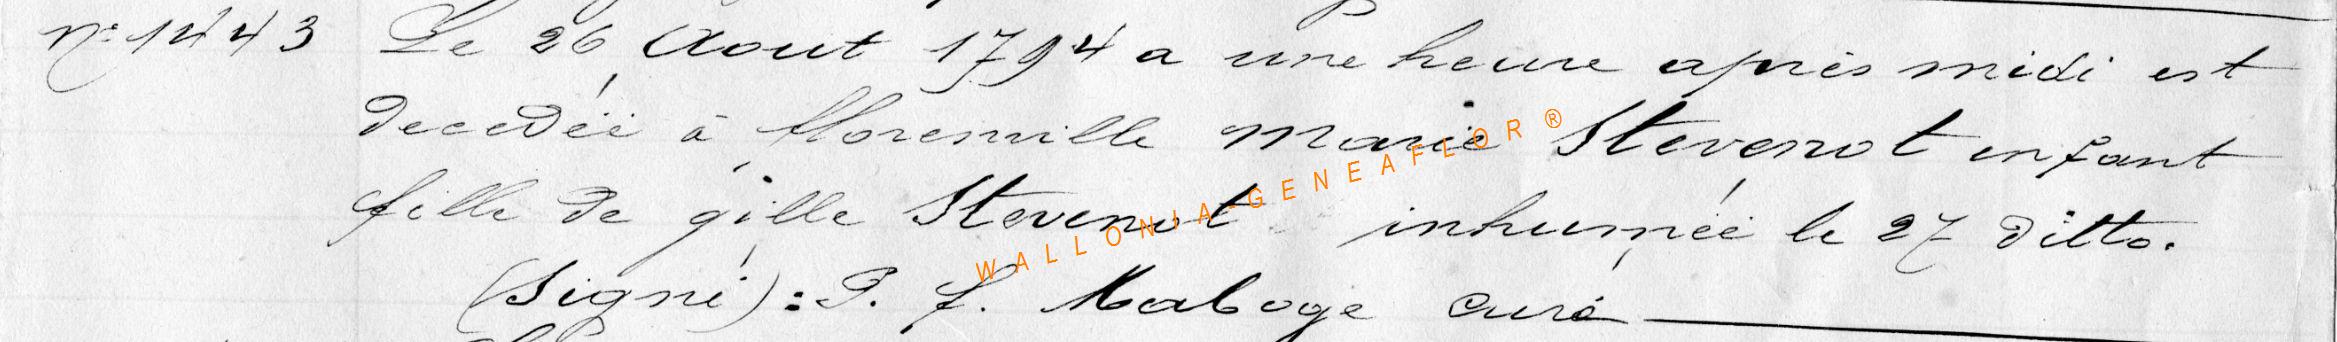 n° 1443 Le 26 Aout 1794 a une heure après midi est
decedée à florenville Marie Stevenot enfant
fille de gille Stevenot inhumée le 27 ditto.
(Signé): P. f. Maboge curé
WALLONIA-GENEAFLOR®